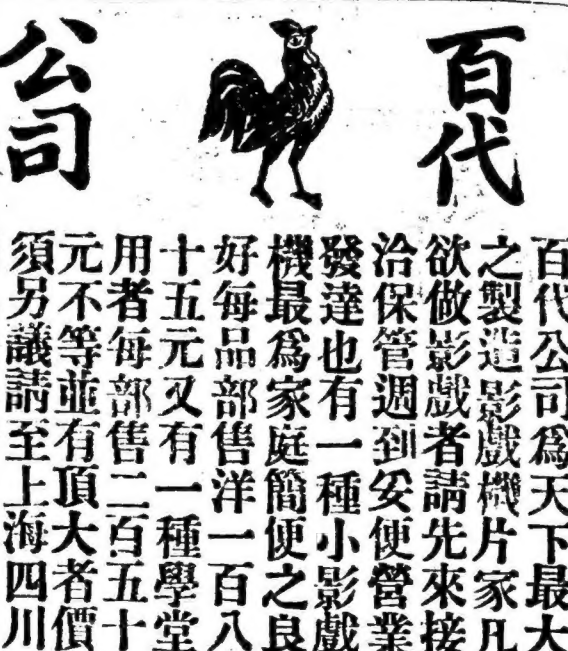 百代
公司
百代公司爲天下最大
之製造影戲機片家凡
欲做影戲者請先來接
洽保管週到妥便營業
發達也有一種小影戲
機最爲家庭簡便之良
好每品部售洋一百八
十五元又有一種學堂
用者每部售二百五十
元不等並有頂大者價
須另議請至上海四川